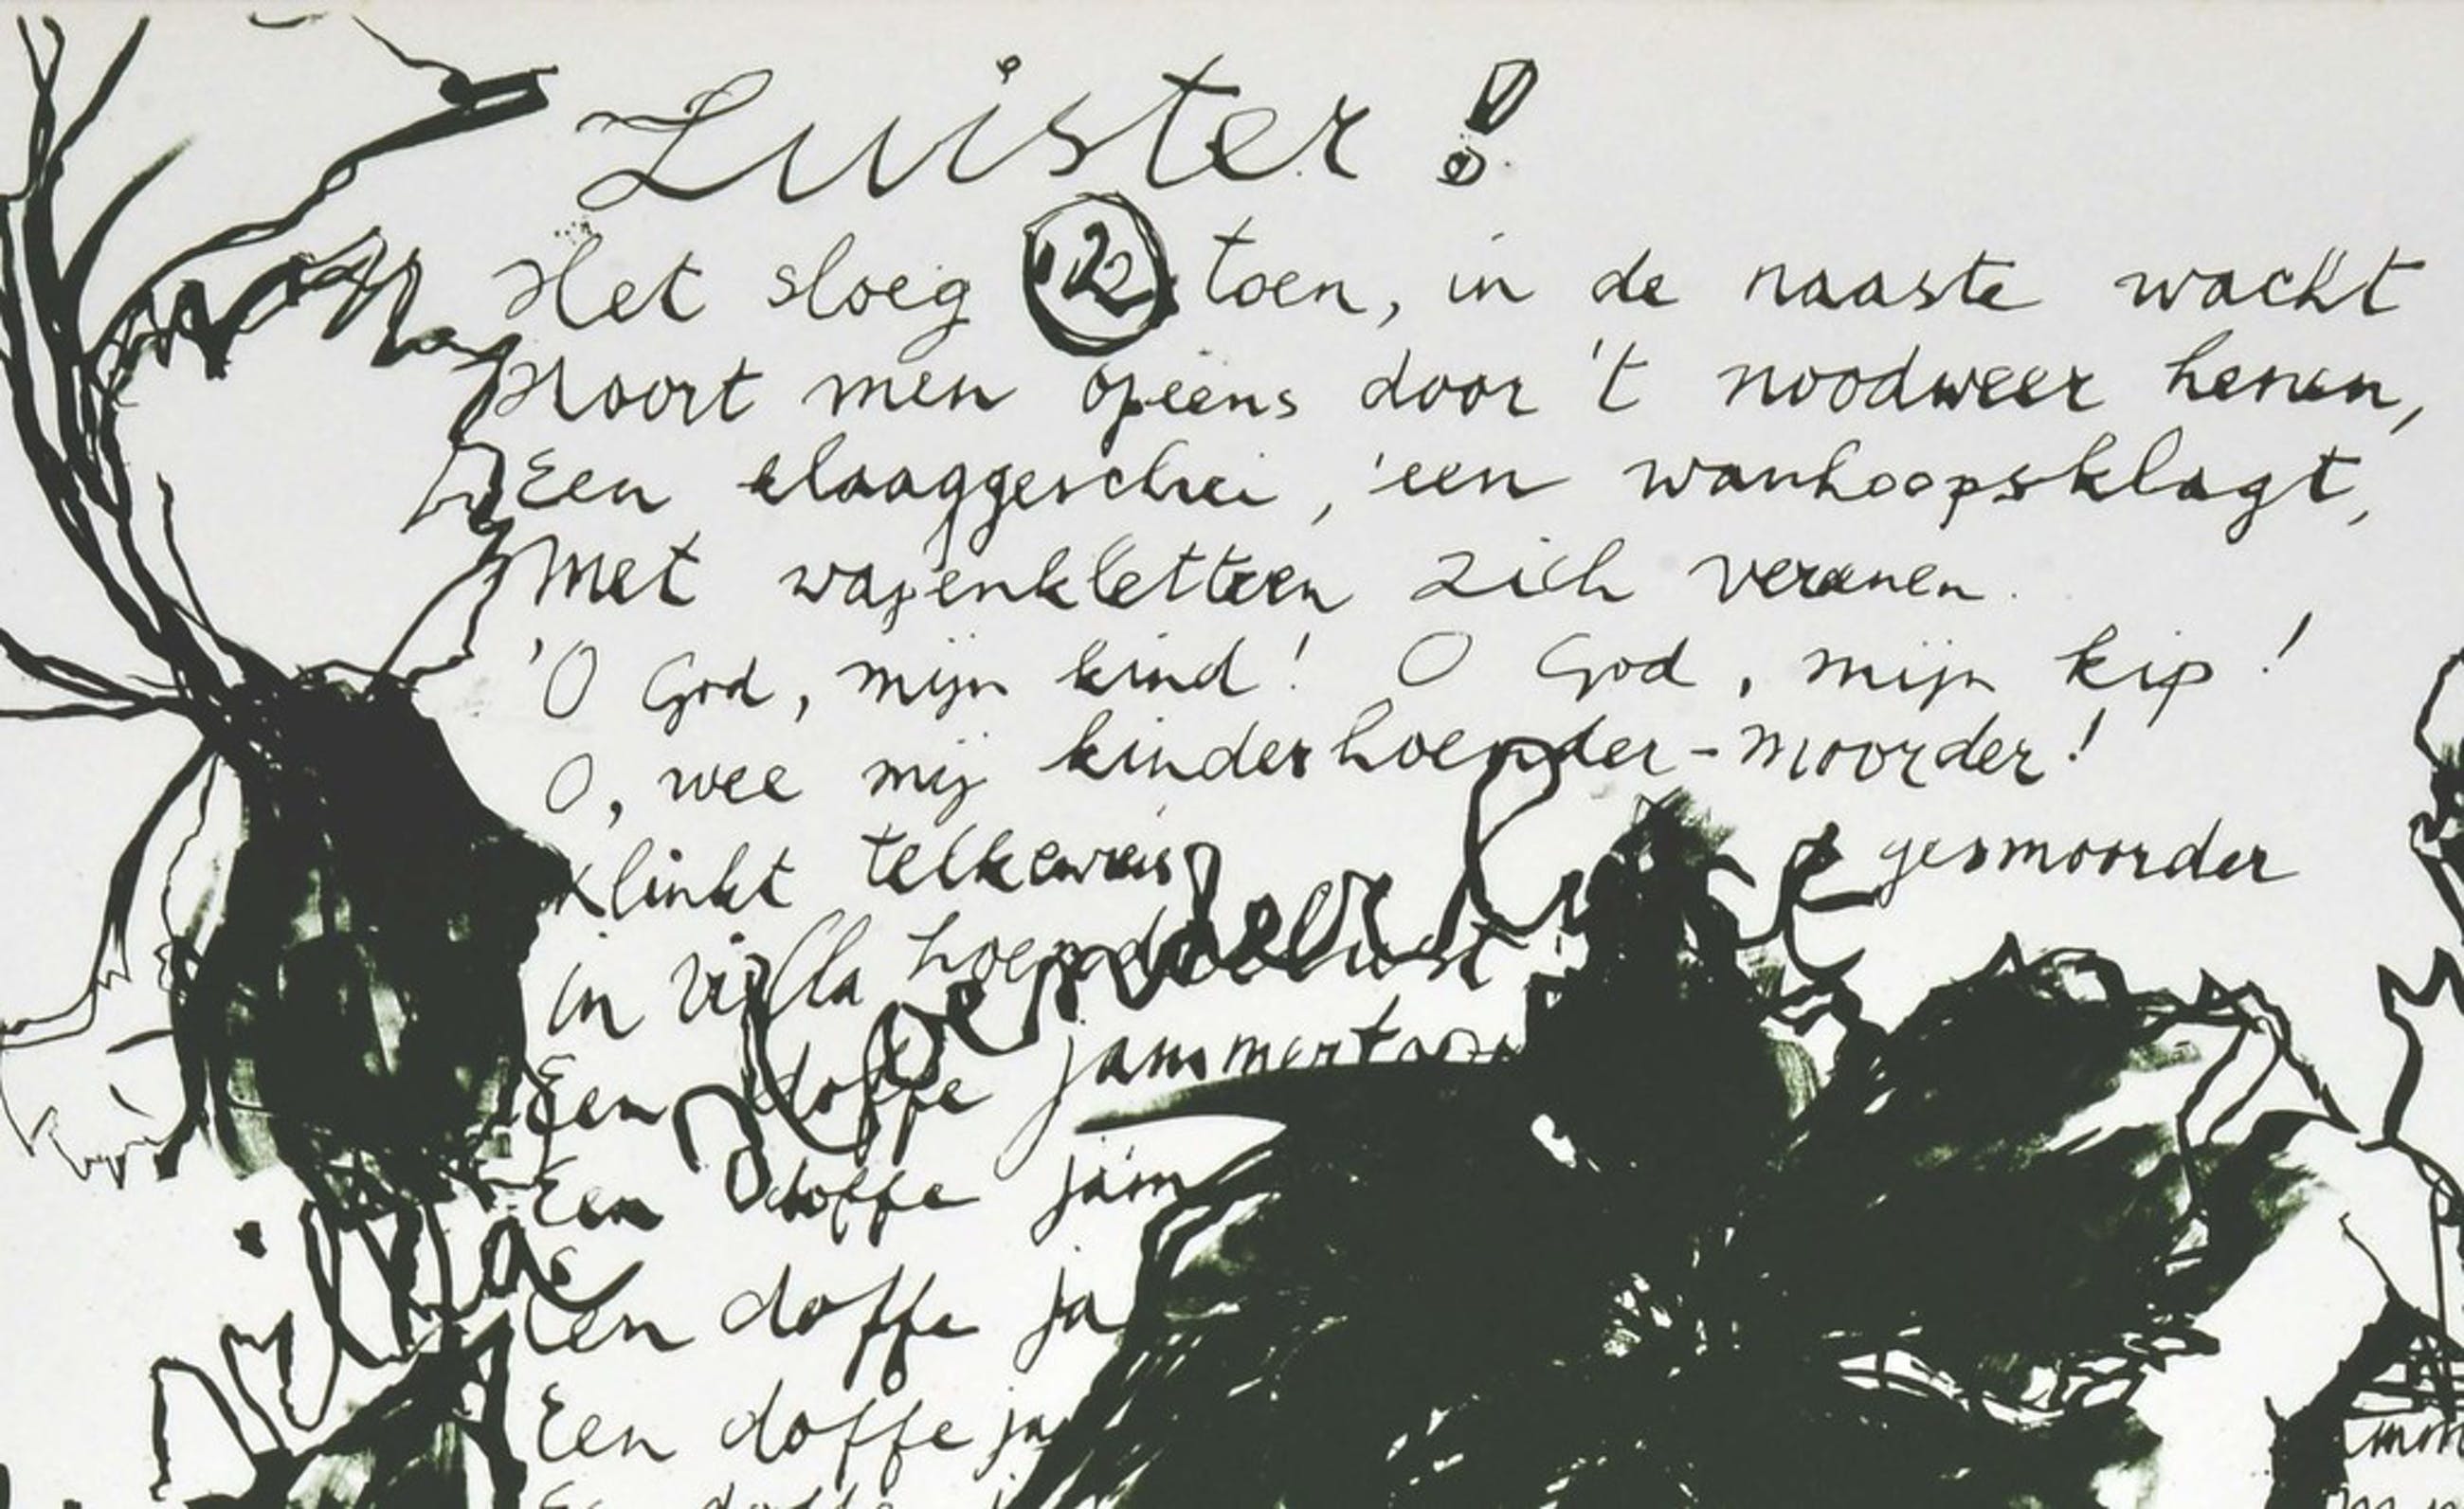 Luister!
Het sloeg 12 toen, in de naaste wacht
Hoort men opeens door 't noodweer henen,
Een klaaggeschrei, 'een wanhoopsklagt,
Met wapenkletteren zich verenen.
'O God, mijn kind! O God, mijn kip!
O, wee mij kinderhoender-moorder!
Klinkt telkenreis gesmoorder
in villa hoenderlust
Een doffe jammertoon
Een doffe jam
Een doffe ja
Een doffe ja
villa hoenderlust